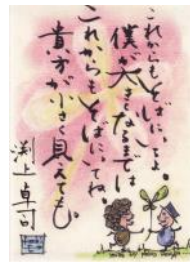 これからもそばにいるよ。
僕が大きくなるまでは
これからもそばにいてね。
貴方が小さく見えても。
渕上卓司